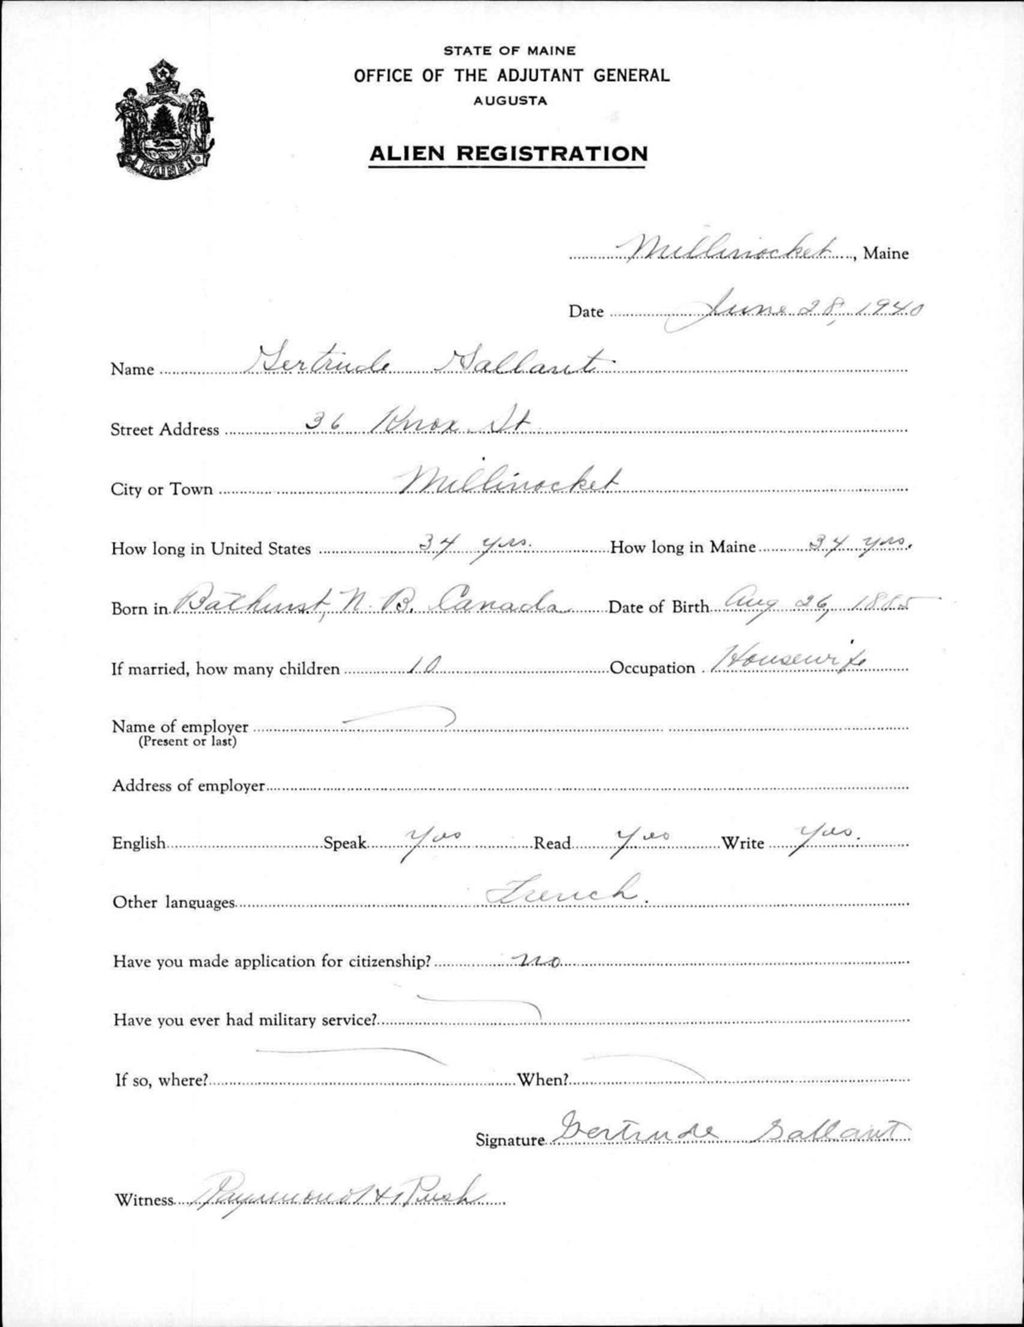 STATE OF MAINE
OFFICE OF THE ADJUTANT GENERAL
AUGUSTA
ALIEN REGISTRATION
MAINE
Millinocket, Maine
Date June 28, 1940
Name Gertrude Gallant
Street Address 36 Knox St
City or Town Millinocket
How long in United States 34 yrs. How long in Maine 34 yrs.
Born in Bathurst, N. B. Canada Date of Birth Aug 26, 1885
If married, how many children 10 Occupation Housewife
Name of employer
(Present or last)
Address of employer
English Speak Yes Read Yes Write Yes.
Other languages French.
Have you made application for citizenship? no
Have you ever had military service?
If so, where? When?
Signature Gertrude Gallant
Witness Raymond H